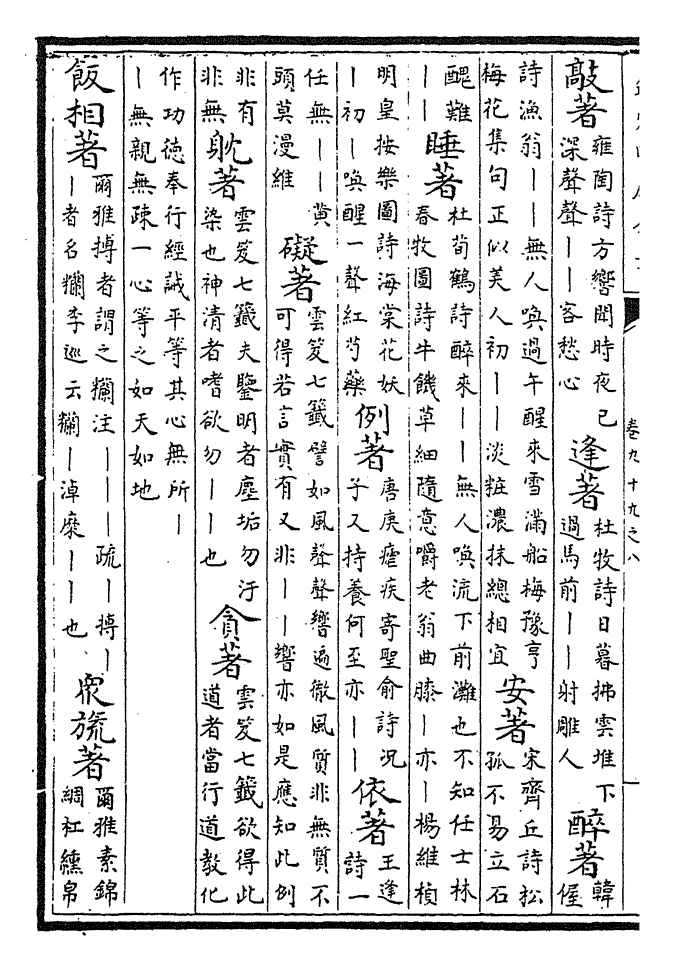 敲著 雍陶詩方響聞時夜已
深聲聲――客愁心 逢著 杜牧詩日暮拂雲堆下
過馬前――射雕人 醉著 韓
偓
詩漁翁――無人喚過午醒來雪滿船梅豫亨
梅花集句正似美人初――淡粧濃抹總相宜 安著 宋齊丘詩松
孤不易立石
醜難
―― 睡著 杜荀鶴詩醉來――無人喚流下前灘也不知任士林
春牧圖詩牛饑草細隨意嚼老翁曲膝―亦―楊維楨
明皇按樂圖詩海棠花妖
―初―喚醒一聲紅芍藥 例著 唐庚瘧疾寄聖俞詩況
子又持養何至亦―― 依著 王逢
詩一
任無――黄
頭莫漫維 礙著 雲笈七籤譬如風聲聲響遍徹風質非無質不
可得若言實有又非――響亦如是應知此例
非有
非無 躭著 雲笈七籤夫鑒明者塵垢勿汙
染也神清者嗜欲勿――也 貪著 雲笈七籤欲得此
道者當行道教化
作功徳奉行經誡平等其心無所―
―無親無疎一心等之如天如地
飯相著 爾雅摶者謂之糷注―――疏―摶―
―者名糷李巡云糷―淖糜――也 衆旒著 爾雅素錦
綢杠纁帛
卷九十九之八